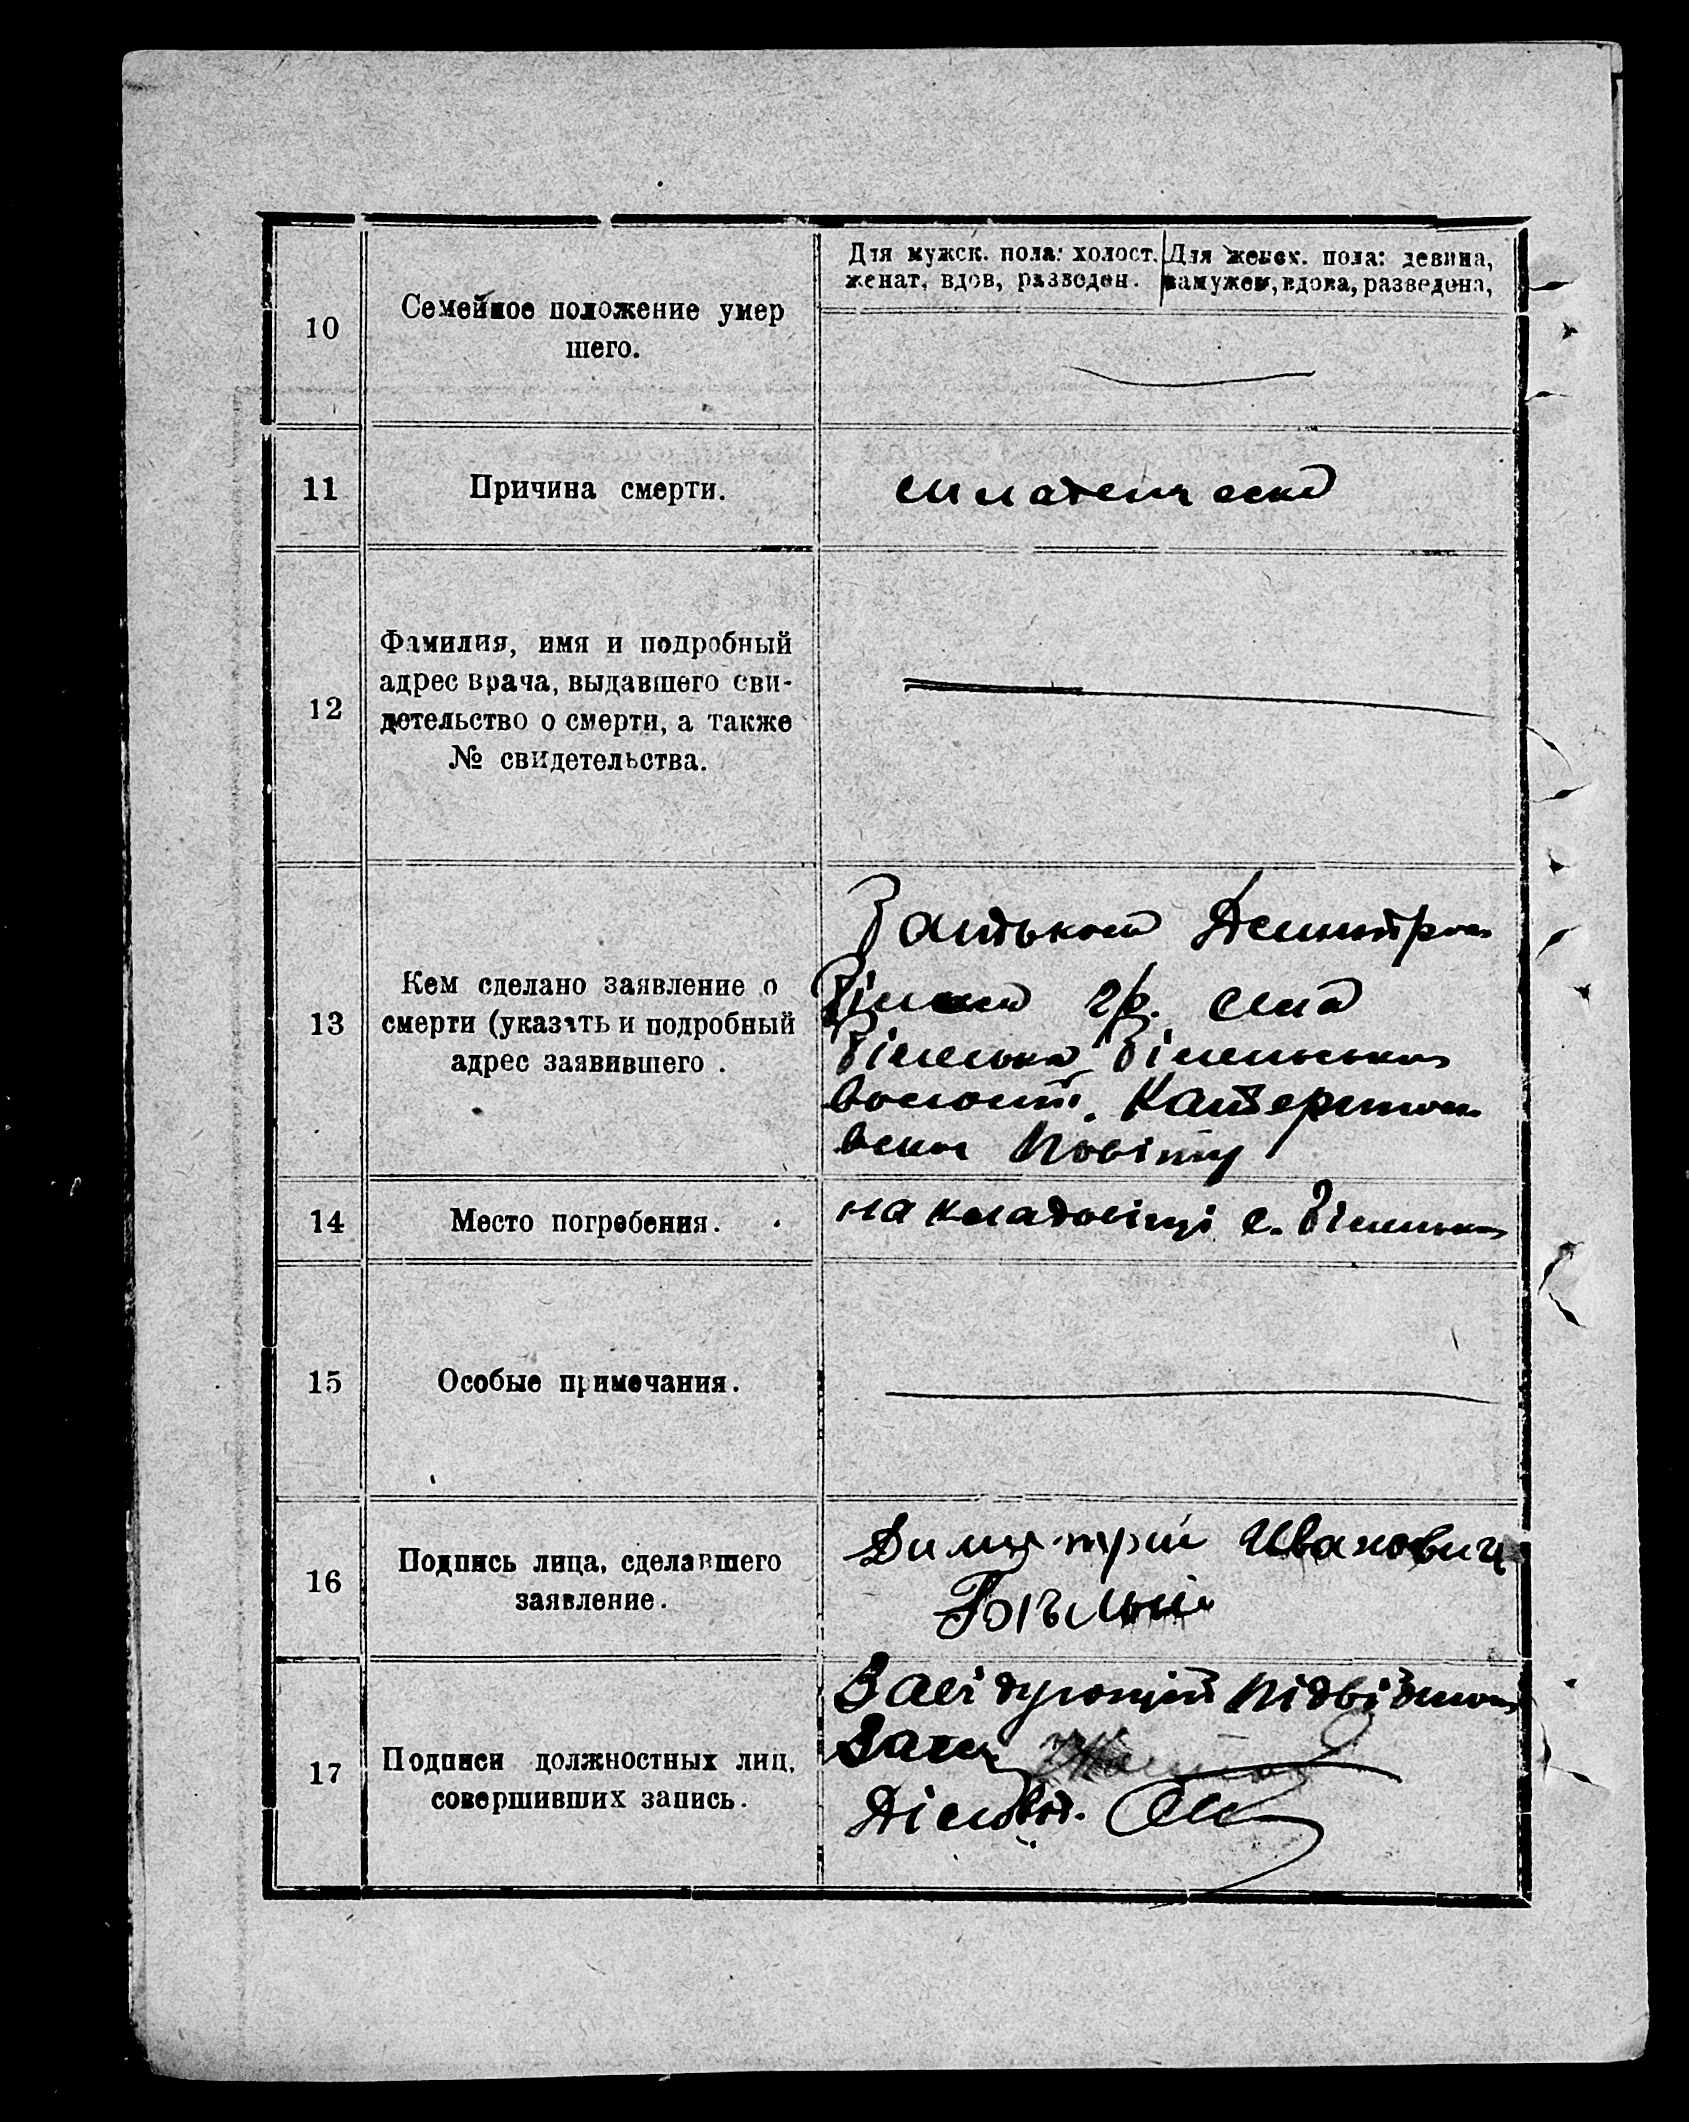 Для мужск. пола: холост. Для женск. пола: девица,
женат, вдов, разведен. замужем, вдова, разведена,
10 Семейное положение умер
шего.
11 Причина смерти.
12 Фамилия, имя и подробный
адрес врача, выдавшего сви-
детельство о смерти, а также
№ свидетельства.
13 Кем сделано заявление о
смерти (указать и подробный
адрес заявившего .
Батьком Демитром
гр. села
волости, Катерино
вског Повіту
14 Место погребения.
на кладовищі с.
15 Особые примечания.
16 Подпись лица, сделавшего
заявление.
Димитрий Иванович
17 Подписи должностных лиц,
совершивших запись.
Завідующий підвідділом
Загс
Діловод.